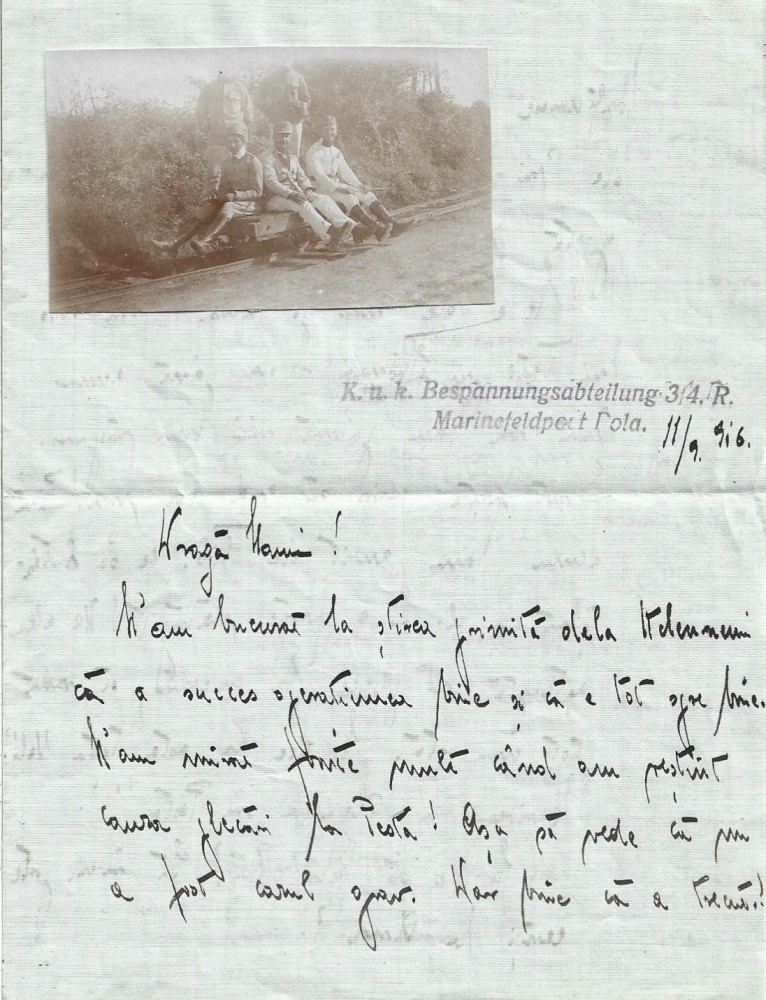 K. u. k. Bespannungsabteilung 3/4. R.
Marinefeldpost Pola.
11/9. 916.
Dragă Mami!
M'am bucurat la știrea primită dela
că a succes operatiunea bine și că e tot spre bine.
M'am mirat foarte mult când am
cauza plecări la Pesta! Așa să vede că nu
a fost casul grav. Dar bine că a trecut!